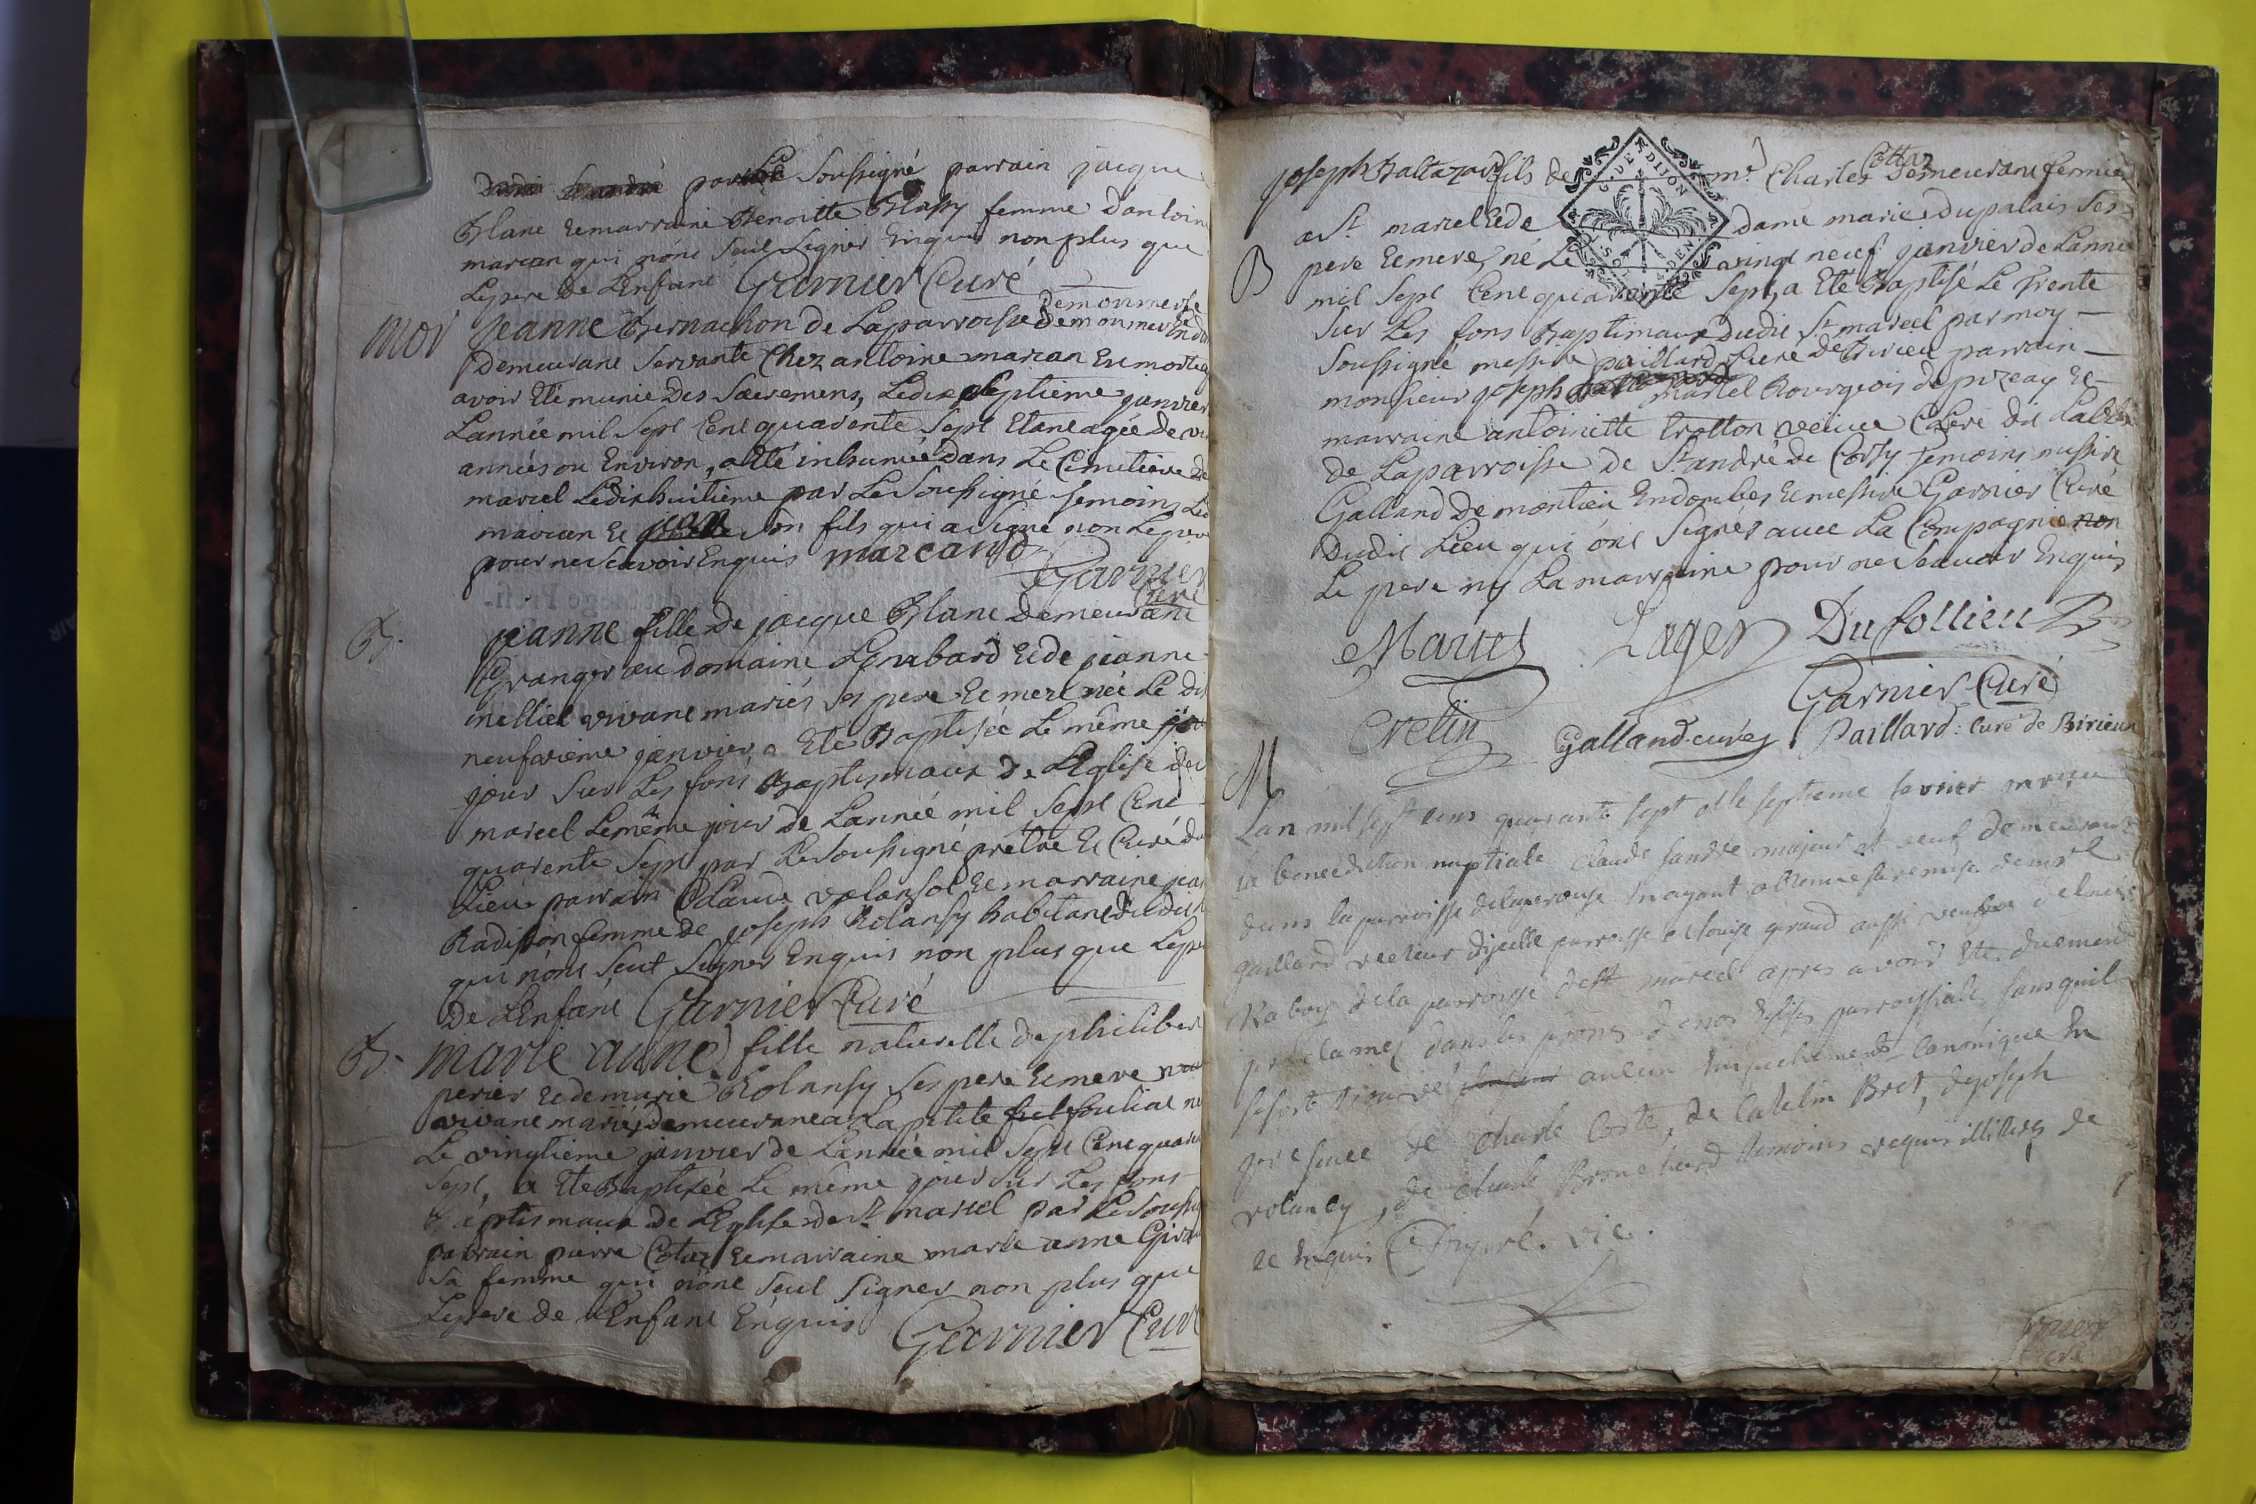 par Le Soussigné parrain jacque
Blanc Et marraine Benoitte Blassy femme dantoine
marcan qui n'ont seut signer Enquis non plus que
Le pere de L'Enfant Garnier Curé
mor jeanne Bernachon de La parroisse de monmerle
demeurant servante Chez antoine marcan Est morte
avoir Eté munie Des Sacremens, Le dix septieme janvier
L'année mil Sept Cent quarente Sept Etant agée de
années ou Environ, a Eté inhumée dans Le Cimetiere de
marcel Le dix huitieme par Le Soussigné temoins
marcan Et son fils qui a signé non Le pere
pour ne Scavoir Enquis marcand
Garnier
Curé
B. jeanne fille de jacque Blanc demeurant
Granger au domaine Lombard Et de jeanne
melliet vivant mariés ses pere Et mere née Le dix
neufvieme janvier a Eté Baptisée Le même
jour sur Les fons Baptismaux de L'Eglise de
marcel Le même jour de L'année mil Sept Cent
quarente Sept par Le Soussigné prêtre Et Curé du
Lieu parrain Claude valansot Et marraine
Radisson femme de joseph Rolansy habitant dudit
qui n'ont Seut Signer Enquis non plus que Le pere
de L'Enfant Garnier Curé
B. marie anne fille naturelle de philibert
perier Et de marie Rolansy ses pere Et mere
vivant mariés demeurant a La petite
Le vingtieme janvier de L'année mil Sept Cent quarente
Sept, a Eté Baptisée Le même jour sur Les fons
Baptismaux de L'Eglise de St marcel par Le Soussigné
parrain pierre Cotaz Et marraine marie anne
sa femme qui n'ont seut signer non plus que
Le pere de L'Enfant Enquis Garnier Curé
joseph Baltazard fils de mr Charles Cottaz demeurant fermier
a St marcel Et de dame marie dupalais ses
B pere Et mere, né Le vingt neuf janvier de L'année
mil Sept Cent quarante Sept, a Eté Baptisé Le Trente
sur Les fons Baptimaux dudit St marcel par moy
Soussigné messire paillard Curé de Birieu parrain
monsieur joseph martel Bourgeois de pizeay Et
marraine antoinette trotton veuve
de La parroisse de St andré de Corsy temoins messire
Galland de montieu En dombes Et messire Garnier Curé
Dudit Lieu qui ont Signés avec La Compagnie non
Le pere ny La marraine pour ne Scavoir Enquis
Martel Lager Du follieu
Garnier Curé
Crelin Galland curé Paillard: Curé de Birieux
M
L'an mil sept cens quarante sept et le septieme fevrier ont reçu
la benediction nuptiale Claude fandre majeur et veuf demeurant
dans la parroisse de laperouse en ayant obtenu la remise de mr
gaillard recteur d'icelle parroisse et louise giraud aussi veufve de louis
Raboy de la parroisse de st marcel apres avoir eté duement
proclamez dans les prones de nos Eglises parroissiales sans quil
se soit trouvé aucun Empechement Canonique En
presence de Charle Coste, de Catelin Bret, de joseph
rolancy, de Charle Bronchard temoins requis illiterés de
ce Enquis vic.